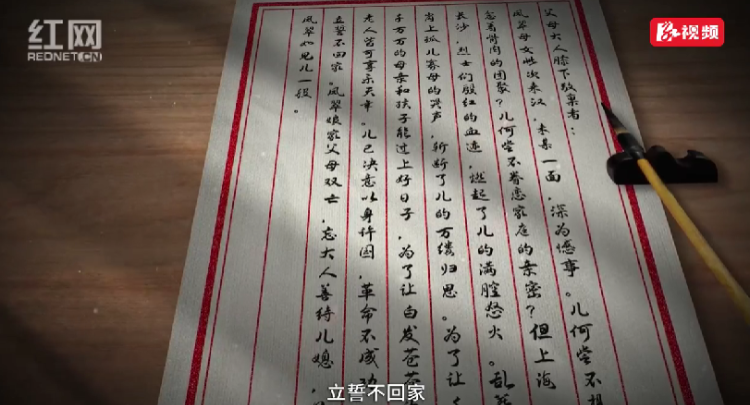 红网
REDNET.CN
视频
父母大人膝下敬禀者：
凤翠母女此次来汉，未晤一面，深为憾事。儿何尝不想
念着骨肉的团聚？儿何尝不眷恋家庭的亲密？但上海
长沙，烈士们殷红的血迹，燃起了儿的满腔怒火。乱葬
岗上孤儿寡母的哭声，斩断了儿的万缕归思。为了让
千万万的母亲和孩子能过上好日子，为了让白发苍苍
老人皆可享乐天年，儿已决意以身许国，革命不成功
立誓不回家。凤翠娘家父母双亡，望大人善待儿媳，
凤翠如见儿一般。
立誓不回家